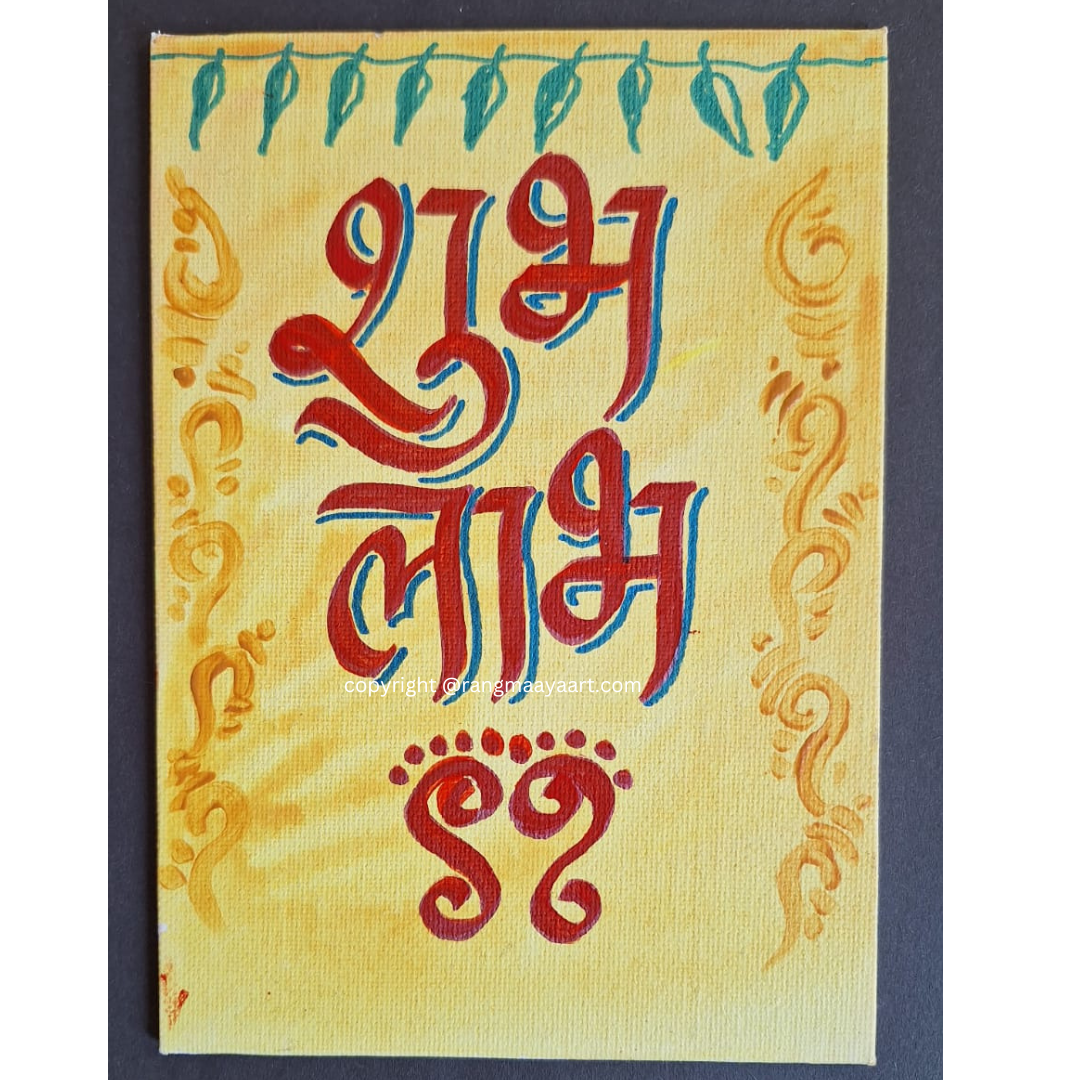 शुभ
लाभ
copyright @rangmaayaart.com